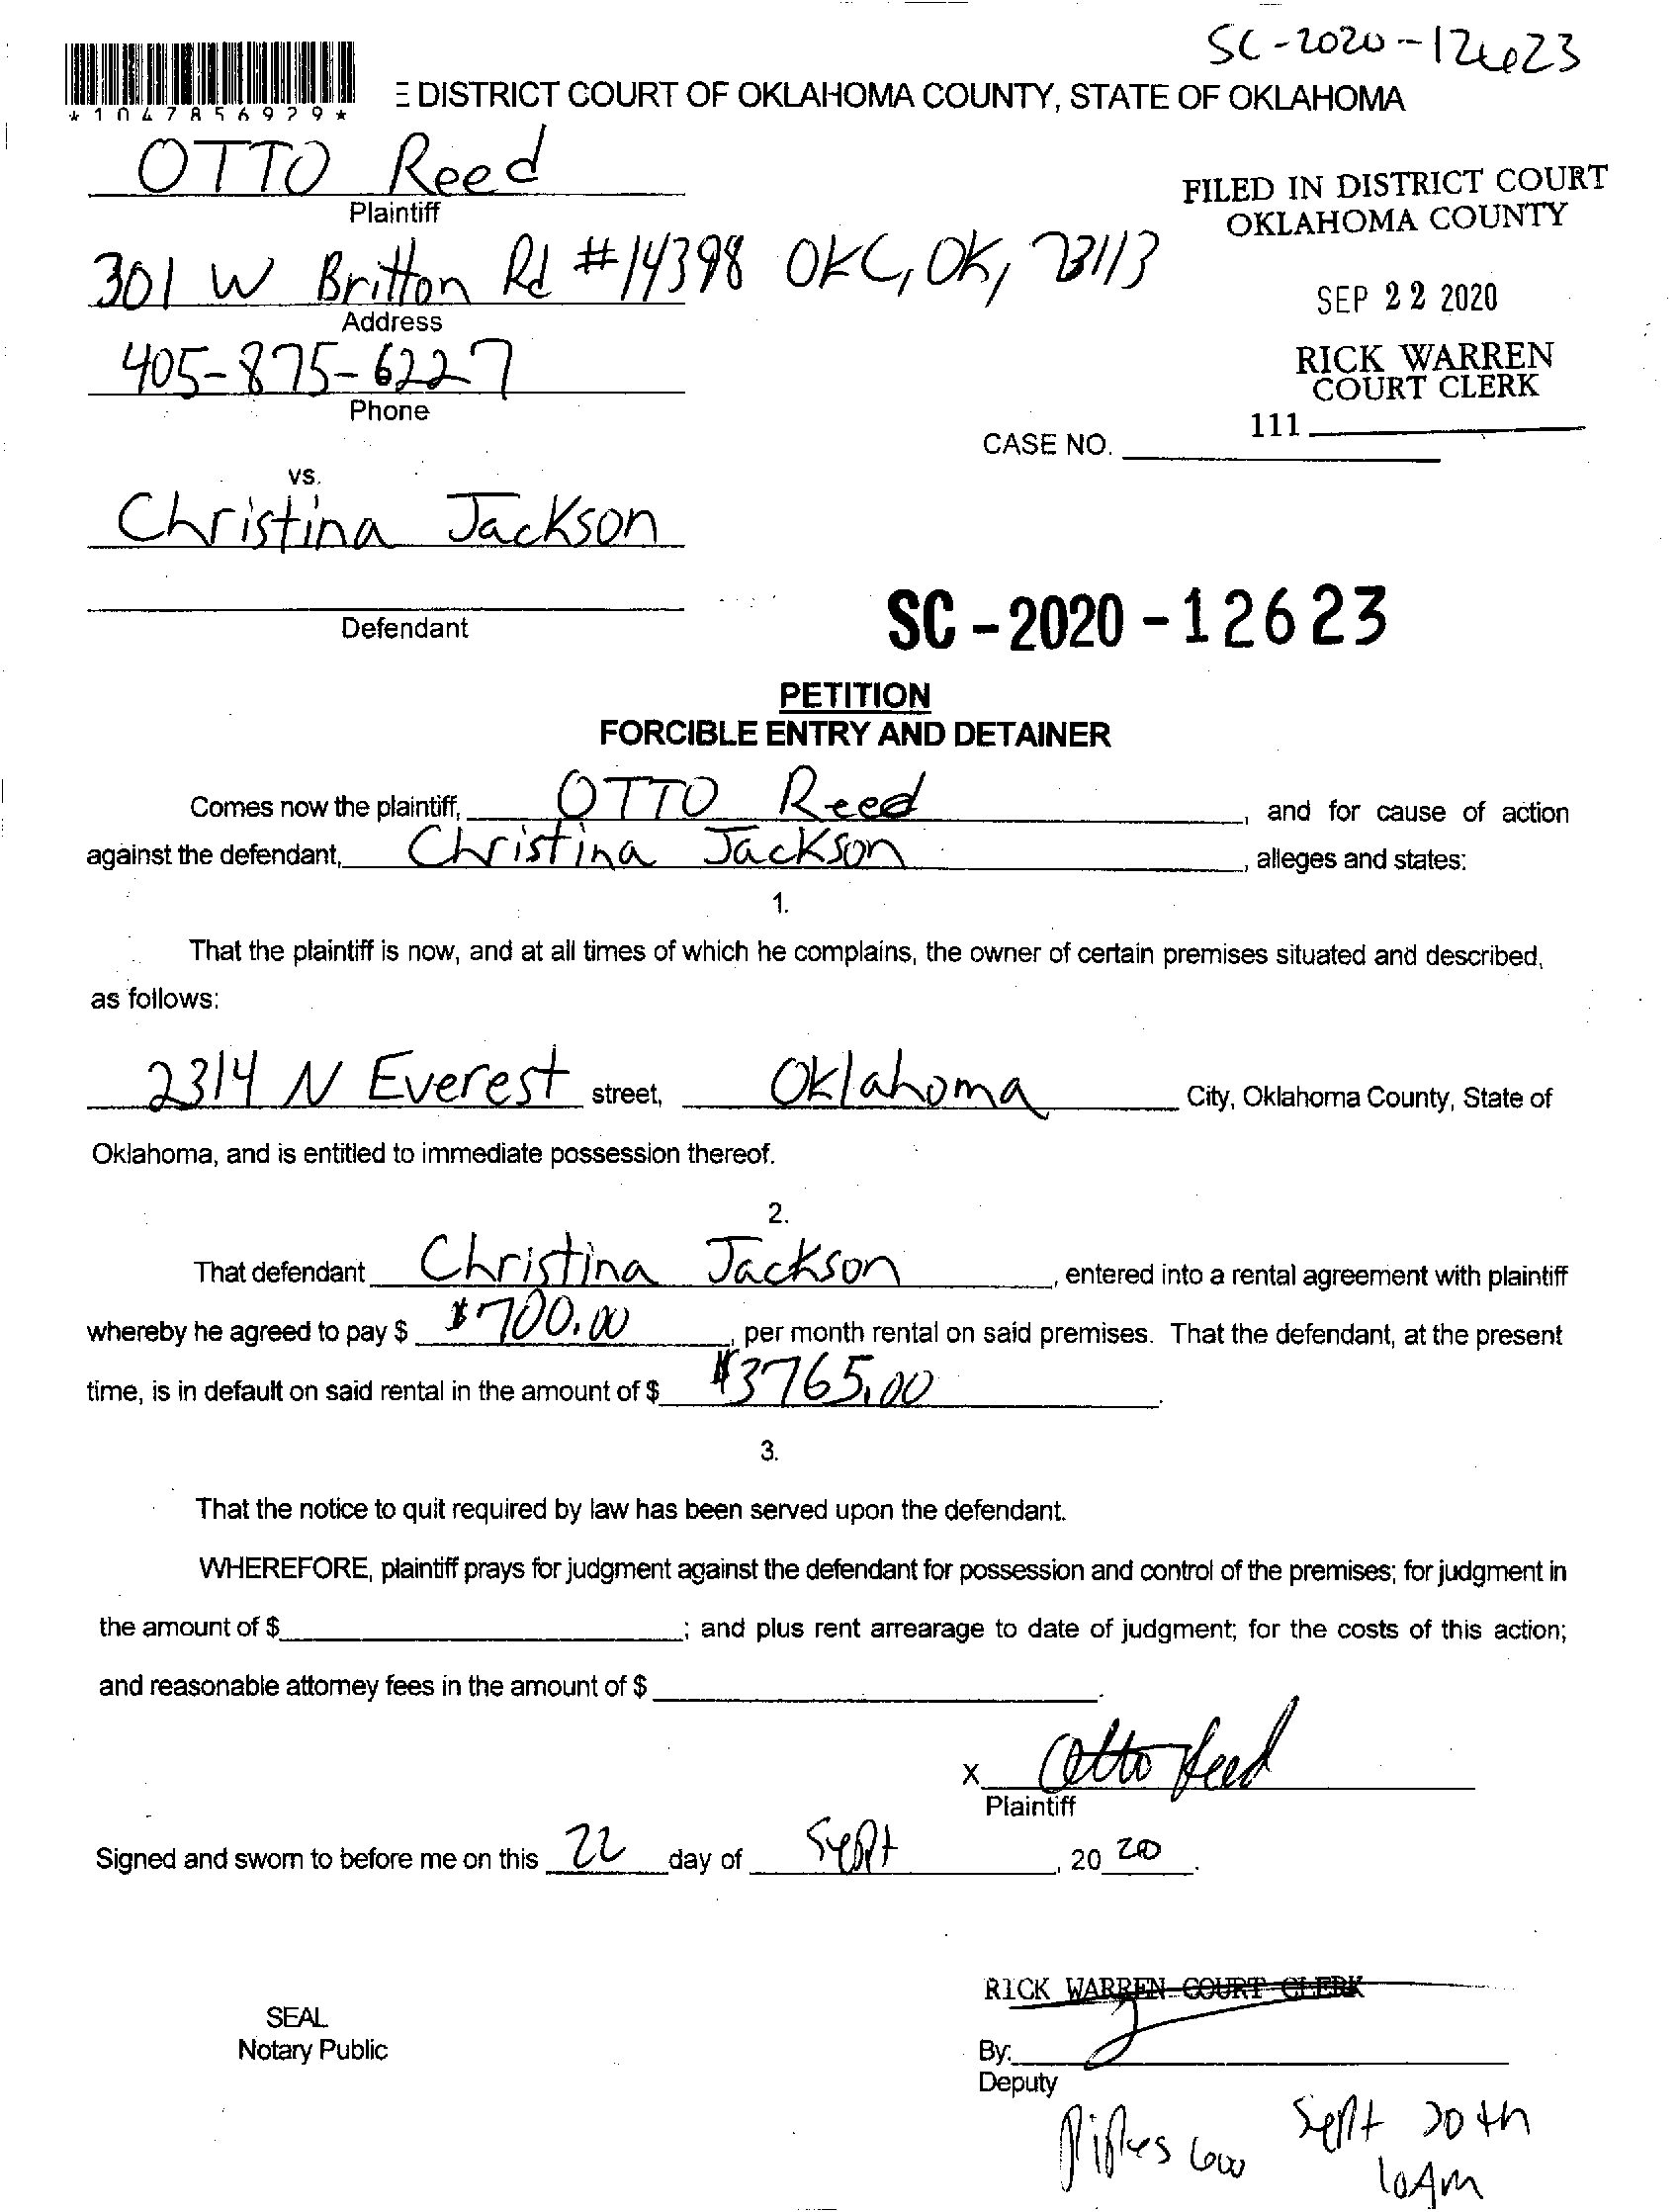 SC-2020-12623
E DISTRICT COURT OF OKLAHOMA COUNTY, STATE OF OKLAHOMA
*1047856929*
OTTO Reed
Plaintiff
FILED IN DISTRICT COURT
OKLAHOMA COUNTY
301 W Britton Rd #14398 OKC, OK, 73113
Address
SEP 22 2020
405-875-6227
Phone
RICK WARREN
COURT CLERK
111
CASE NO.
vs.
Christina Jackson
Defendant
SC-2020-12623
PETITION
FORCIBLE ENTRY AND DETAINER
Comes now the plaintiff, OTTO Reed, and for cause of action
against the defendant, Christina Jackson, alleges and states:
1.
That the plaintiff is now, and at all times of which he complains, the owner of certain premises situated and described,
as follows:
2314 N Everest street, Oklahoma City, Oklahoma County, State of
Oklahoma, and is entitled to immediate possession thereof.
2.
That defendant Christina Jackson, entered into a rental agreement with plaintiff
whereby he agreed to pay $ $700.00, per month rental on said premises. That the defendant, at the present
time, is in default on said rental in the amount of $ $3765.00.
3.
That the notice to quit required by law has been served upon the defendant.
WHEREFORE, plaintiff prays for judgment against the defendant for possession and control of the premises; for judgment in
the amount of $ ; and plus rent arrearage to date of judgment; for the costs of this action;
and reasonable attorney fees in the amount of $ .
x Otto Reed
Plaintiff
Signed and sworn to before me on this 22 day of Sept, 20 20.
RICK WARREN COURT CLERK
SEAL
Notary Public
By:
Deputy
Sept
10AM